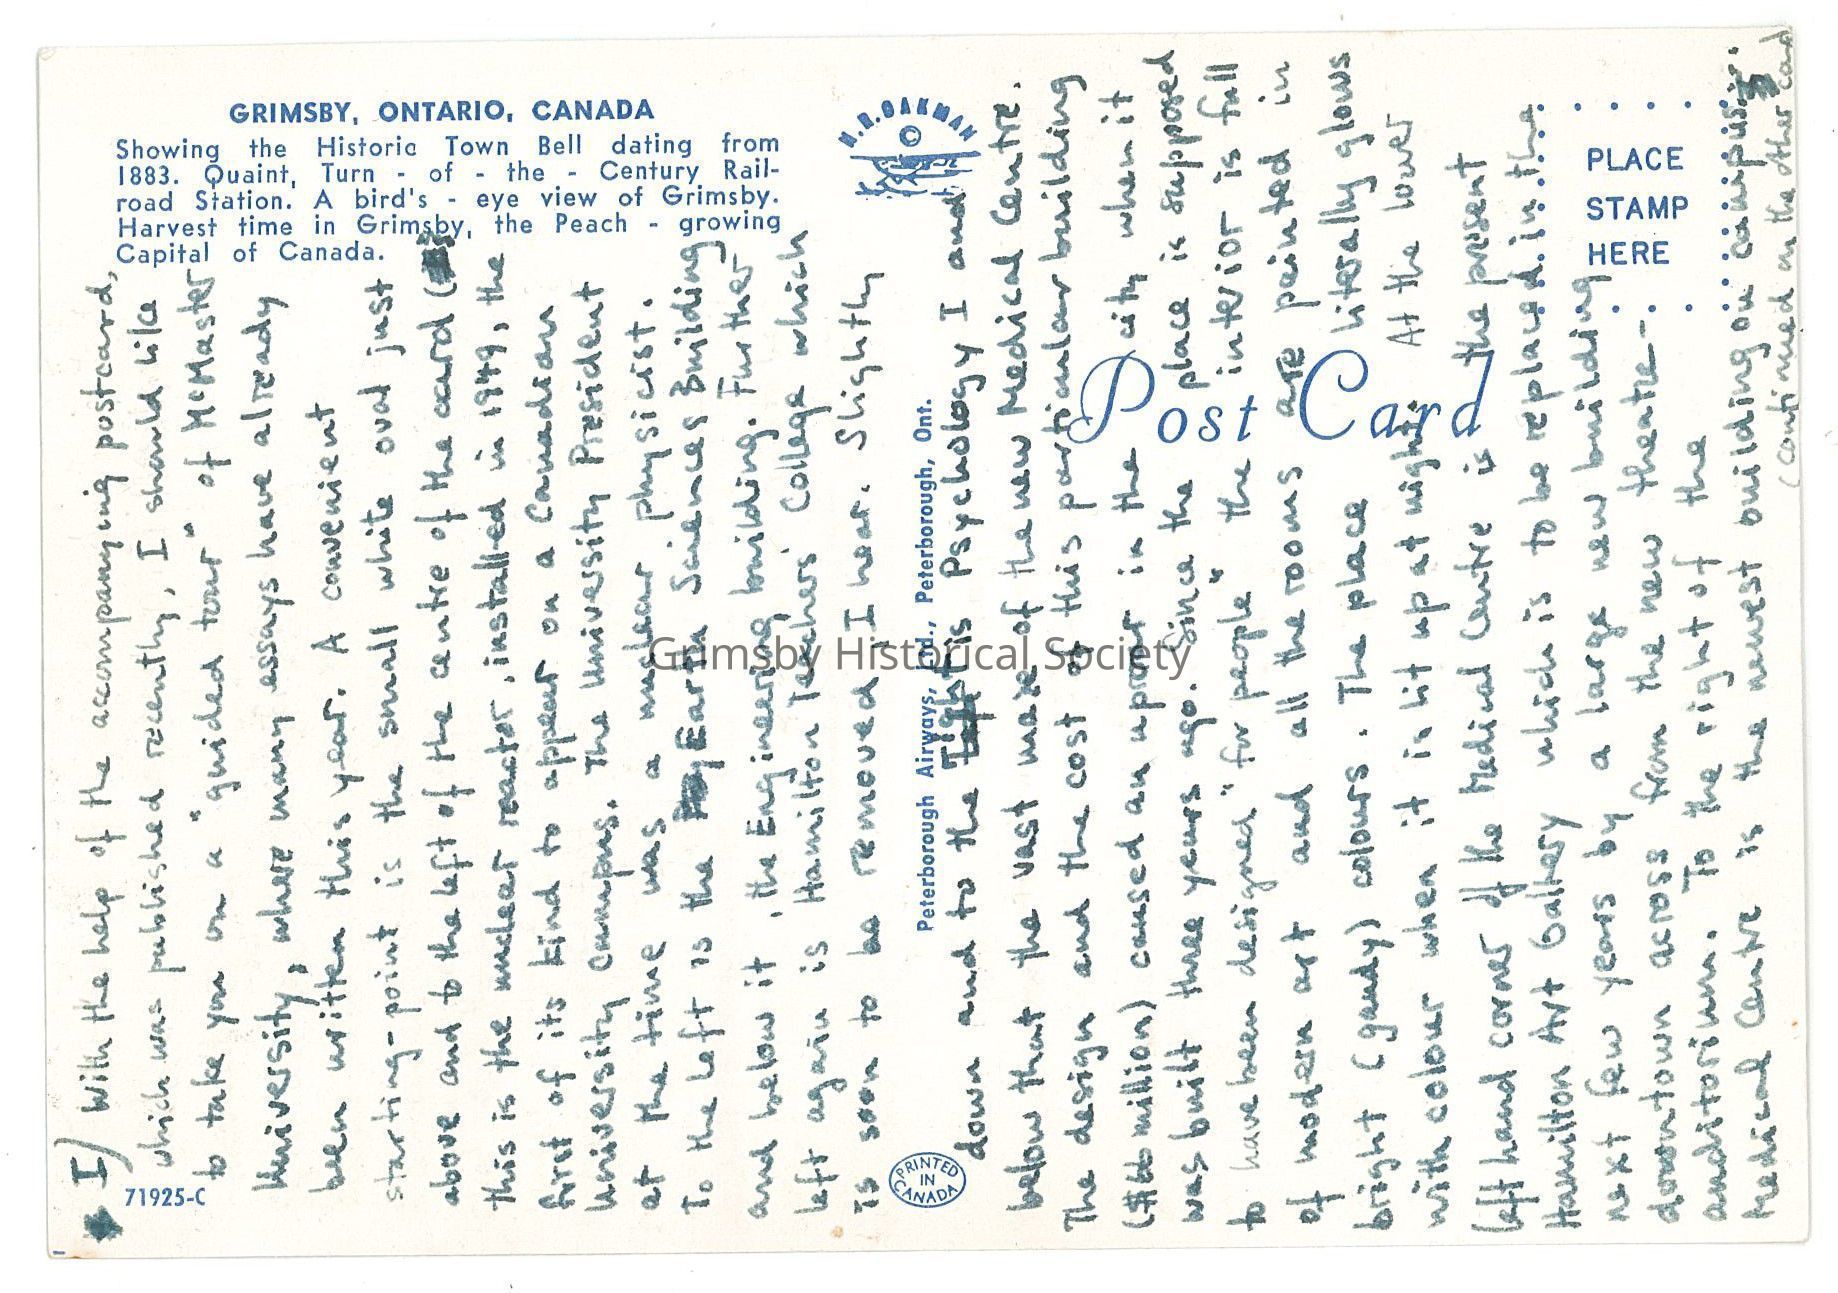 GRIMSBY, ONTARIO, CANADA
Showing the Historic Town Bell dating from
1883. Quaint, Turn - of - the - Century Rail-
road Station. A bird's - eye view of Grimsby.
Harvest time in Grimsby, the Peach - growing
Capital of Canada.
N.R. OAKMAN
©
PLACE
STAMP
HERE
Post Card
Peterborough Airways, Ltd., Peterborough, Ont.
PRINTED
IN
CANADA
71925-C
Grimsby Historical Society
I) With the help of the accompanying postcard,
which was published recently, I should like
to take you on a "guided tour" of McMaster
University, where many essays have already
been written this year. A convenient
starting-point is the small white oval just
above and to the left of the centre of the card (
this is the nucleer reactor, installed in 1949, the
first of its kind to appear on a Canadian
University campus. The University President
at the time was a nuclear physicist.
To the left is the Earth Sciences Building
and below it, the Engineering building. Further
left again is Hamilton Teachers' College which
is soon to be removed I hear. Slightly
down and to the is Psychology I and
below that the vast maze of the new Medical Centre.
The design and the cost of this particular building
million) caused an uproar in the city when it
was built three years ago. Since the place is supposed
to have been designed "for people" the interior is full
of modern art and all the rooms are painted in
bright (gaudy) colours. The place literally glows
with colour when it is lit up at night. At the lower
left hand corner of the Medical Centre is the present
Hamilton Art Gallery which is to be replaced in the
next few years by a large new building
downtown across from the new theatre-
auditorium. To the right of the
Medical Centre is the newest building on campus:
(continued on the other card